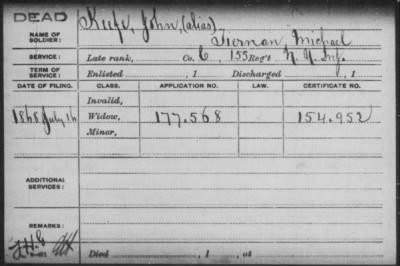 DEAD
Keefe, John, (alias)
NAME OF SOLDIER: Tiernan Michael
SERVICE: Late rank, Co. C, 155 Reg't N. Y. Inf.
TERM OF SERVICE: Enlisted , 1 Discharged , 1
DATE OF FILING. CLASS. APPLICATION NO. LAW. CERTIFICATE NO.
Invalid,
1868 July 16 Widow, 177.568 154.952
Minor,
ADDITIONAL SERVICES:
REMARKS:
Died , 1 , at